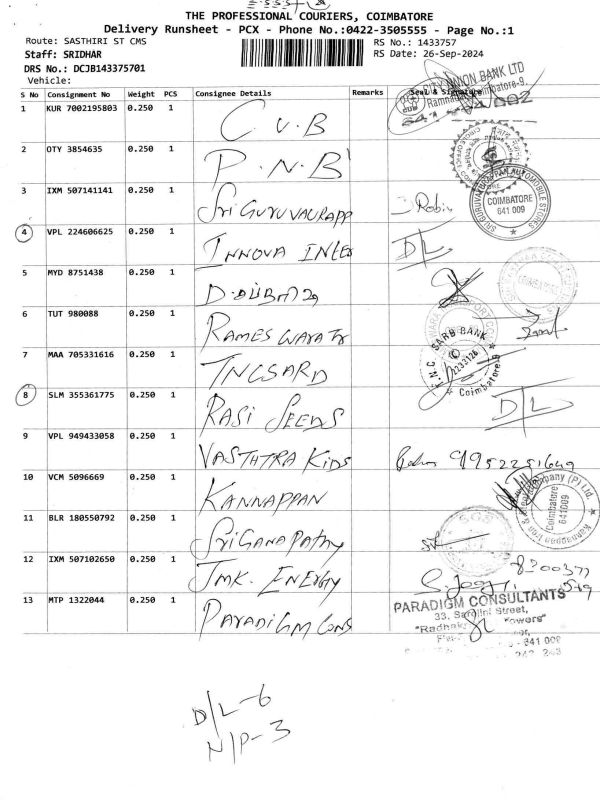 THE PROFESSIONAL COURIERS, COIMBATORE
Delivery Runsheet - PCX - Phone No.:0422-3505555 - Page No.:1
Route: SASTHIRI ST CMS
RS No.: 1433757
Staff: SRIDHAR
RS Date: 26-Sep-2024
DRS No.: DCJB143375701
Vehicle:
S No Consignment No Weight PCS Consignee Details Remarks Seal & Signature
CITY UNION BANK LTD
Ramnagar, Coimbatore-9.
641 054 002
1 KUR 7002195803 0.250 1 C U B
2 OTY 3854635 0.250 1 P.N.B
3 IXM 507141141 0.250 1 Sri Guruvaurapp Robin
SRI GURUVAYURAPPAN AUTOMOBILE STORES
COIMBATORE
641 009
4 VPL 224606625 0.250 1 INNOVA INTER D/L
5 MYD 8751438 0.250 1
6 TUT 980088 0.250 1 RAMESWARA Tr
7 MAA 705331616 0.250 1 TNGSARD
SARB BANK
Coimbatore-9
8 SLM 355361775 0.250 1 RASI SEEDS D/L
9 VPL 949433058 0.250 1 VASTHTRA KIDS 9952251649
10 VCM 5096669 0.250 1 KANNAPPAN
Kannappan Iron & Steel Company (P) Ltd.
Coimbatore
641009
11 BLR 180550792 0.250 1 Sri Ganapathy
12 IXM 507102650 0.250 1 JMK. ENERGY
13 MTP 1322044 0.250 1 PARADIGM CONS
PARADIGM CONSULTANTS
33, Sarojini Street,
Towers"
- 641 009
D/L-6
N/P-3